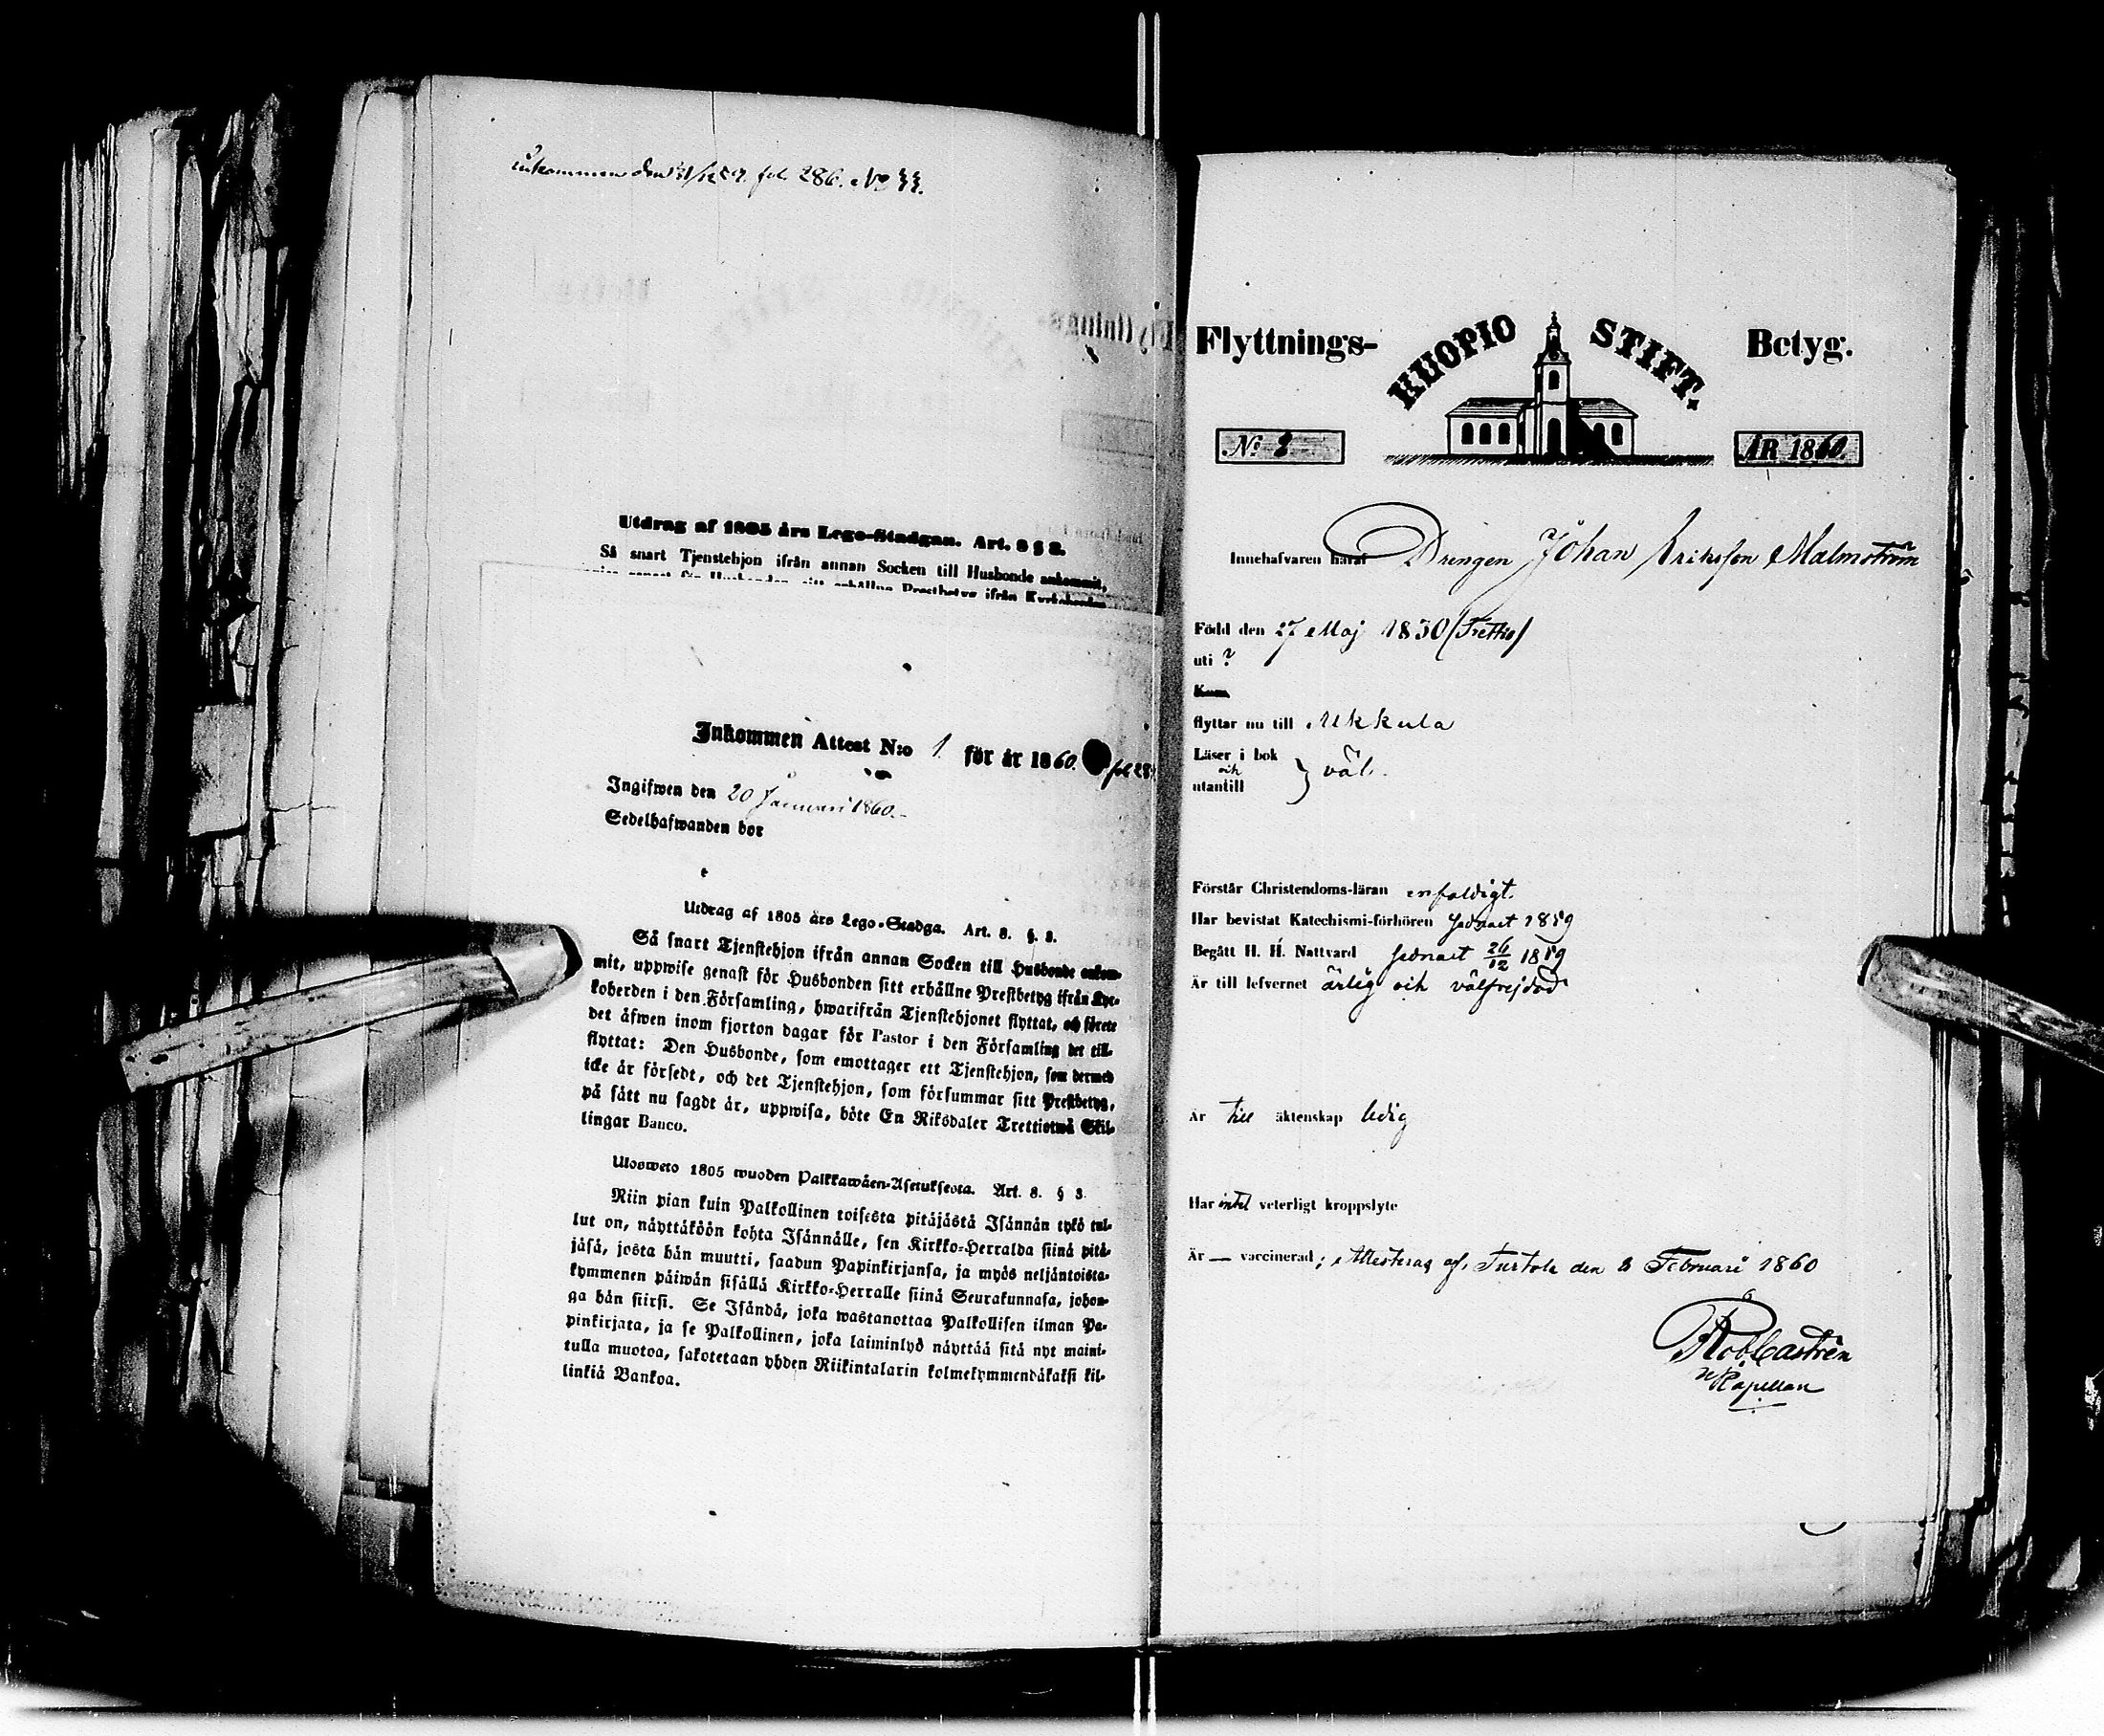 inkommen den 31/12 59. fol. 286. No 33.
Utdrag af 1805 års Lego-Stadgan. Art. 8 § 3.
Så snart Tjenstehjon ifrån annan Socken till Husbonde ankommit,
Inkommen Attest N:o 1. för år 1860. fol 28
Ingifwen den 20 Januari 1860.
Sedelhafwanden bor
Utdrag af 1805 års Lego-Stadga. Art. 8. §. 3.
Så snart Tjenstehjon ifrån annan Socken till Husbonde ankom-
mit, uppwise genast för Husbonden sitt erhållne Prestbetyg ifrån Kyr-
koherden i den Församling, hwarifrån Tjenstehjonet flyttat, och förete
det äfwen inom fjorton dagar för Pastor i den Församling det till-
flyttat: Den Husbonde, som emottager ett Tjenstehjon, som dermed
icke är försedt, och det Tjenstehjon, som försummar sitt Prestbetyg,
på sätt nu sagdt är, uppwisa, böte En Riksdaler Trettiotwå Skil-
lingar Banco.
Ulosweto 1805 wuoden Palkkawäen-Asetuksesta. Art. 8. § 3.
Niin pian kuin Palkollinen toisesta pitäjästä Isännän tykö tul-
lut on, näyttäköön kohta Isännälle, sen Kirkko-Herralda siinä pitä-
jäsä, josta hän muutti, saadun Papinkirjansa, ja myös neljäntoista-
kymmenen päiwän sisällä Kirkko-Herralle siinä Seurakunnasa, johon-
ga hän siirsi. Se Isändä, joka wastanottaa Palkollisen ilman Pa-
pinkirjata, ja se Palkollinen, joka laiminlyö näyttää sitä nyt maini-
tulla muotoa, sakotetaan yhden Riikintalarin kolmekymmendäkaksi kil-
linkiä Bankoa.
Flyttnings- KUOPIO STIFT. Betyg.
No 2 ÅR 1860.
Innehafvaren häraf Drengen Johan Eriksson Malmström
Född den 27 Maj 1830 (Trettio)
uti ?
Kom
flyttar nu till Ukkula
Läser i bok
och } väl.
utantill
Förstår Christendoms-läran enfaldigt.
Har bevistat Katechismi-förhören sednast 1859
Begått H. H. Nattvard sednast 26/12 1859
Är till lefvernet ärlig och välfrejdad
Är till äktenskap ledig
Har intet veterligt kroppslyte
Är — vaccinerad; Attesteras af, Turtola den 2 Februari 1860
Rob Castrén
Kapellan